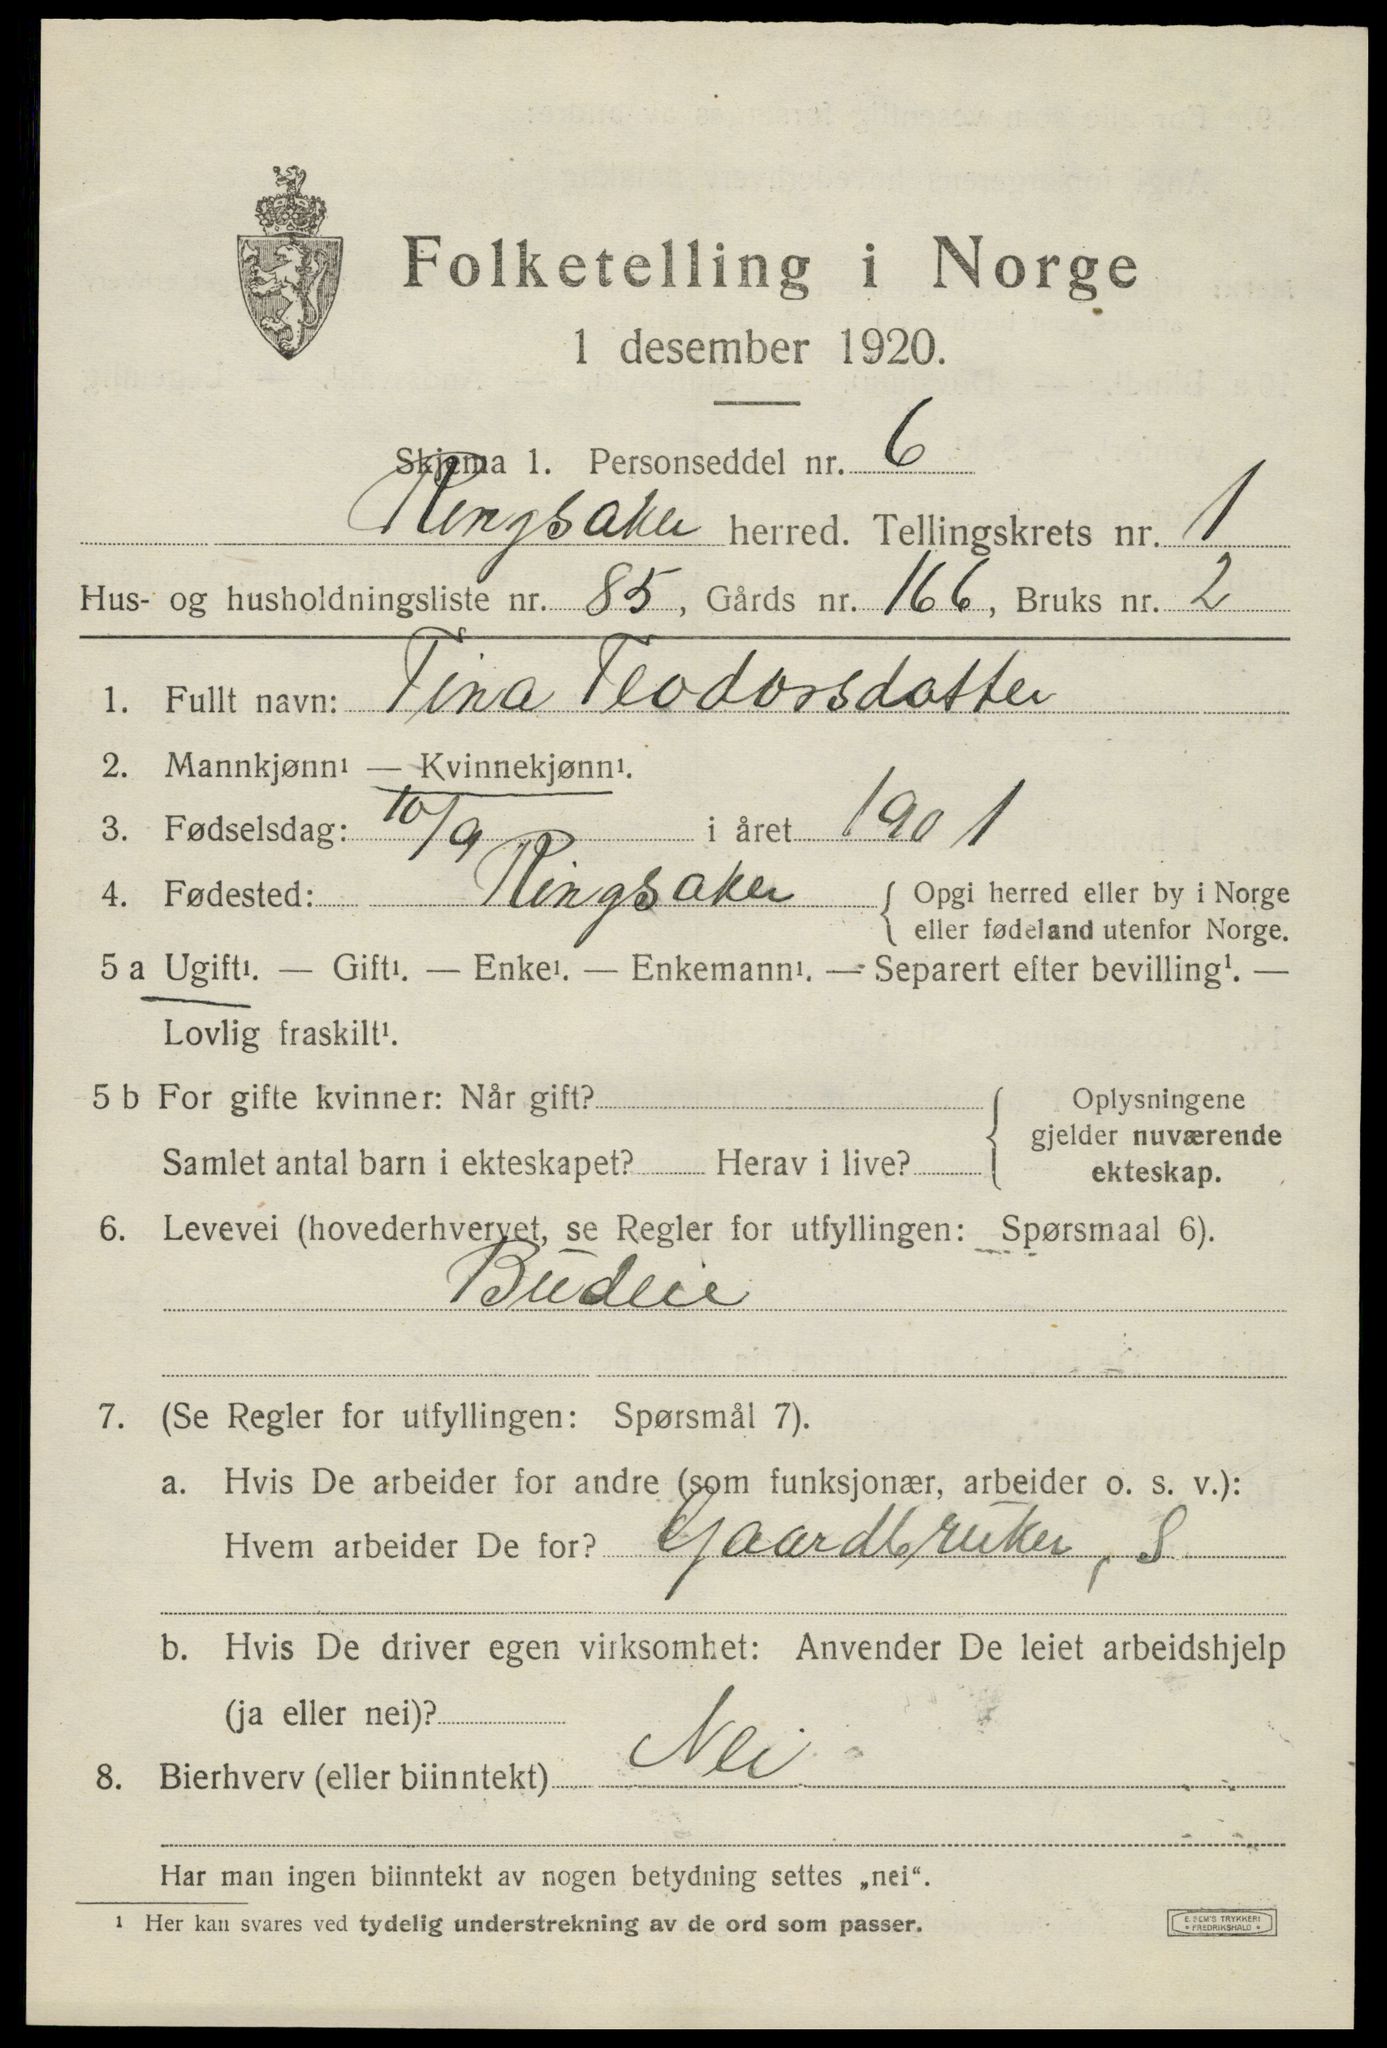 Folketelling i Norge
1 desember 1920.
Skjema 1. Personseddel nr. 6
Ringsaker herred. Tellingskrets nr. 1
Hus- og husholdningsliste nr. 85, Gårds nr. 166, Bruks nr. 2
1. Fullt navn: Tina Teodorsdatter
2. Mannkjønn¹ — Kvinnekjønn¹.
3. Fødselsdag: 10/9 i året 1901
4. Fødested: Ringsaker { Opgi herred eller by i Norge
eller fødeland utenfor Norge.
5 a Ugift¹. — Gift¹. — Enke¹. — Enkemann¹. — Separert efter bevilling¹. —
Lovlig fraskilt¹.
5 b For gifte kvinner: Når gift? { Oplysningene
gjelder nuværende
Samlet antal barn i ekteskapet? Herav i live? ekteskap.
6. Levevei (hovederhvervet, se Regler for utfyllingen: Spørsmaal 6).
Budeie
7. (Se Regler for utfyllingen: Spørsmål 7).
a. Hvis De arbeider for andre (som funksjonær, arbeider o. s. v.):
Hvem arbeider De for? Gaardbruker, S
b. Hvis De driver egen virksomhet: Anvender De leiet arbeidshjelp
(ja eller nei)?
8. Bierhverv (eller biinntekt) Nei
Har man ingen biinntekt av nogen betydning settes „nei“.
¹ Her kan svares ved tydelig understrekning av de ord som passer.
E. SEM'S TRYKKERI
• FREDRIKSHALD •